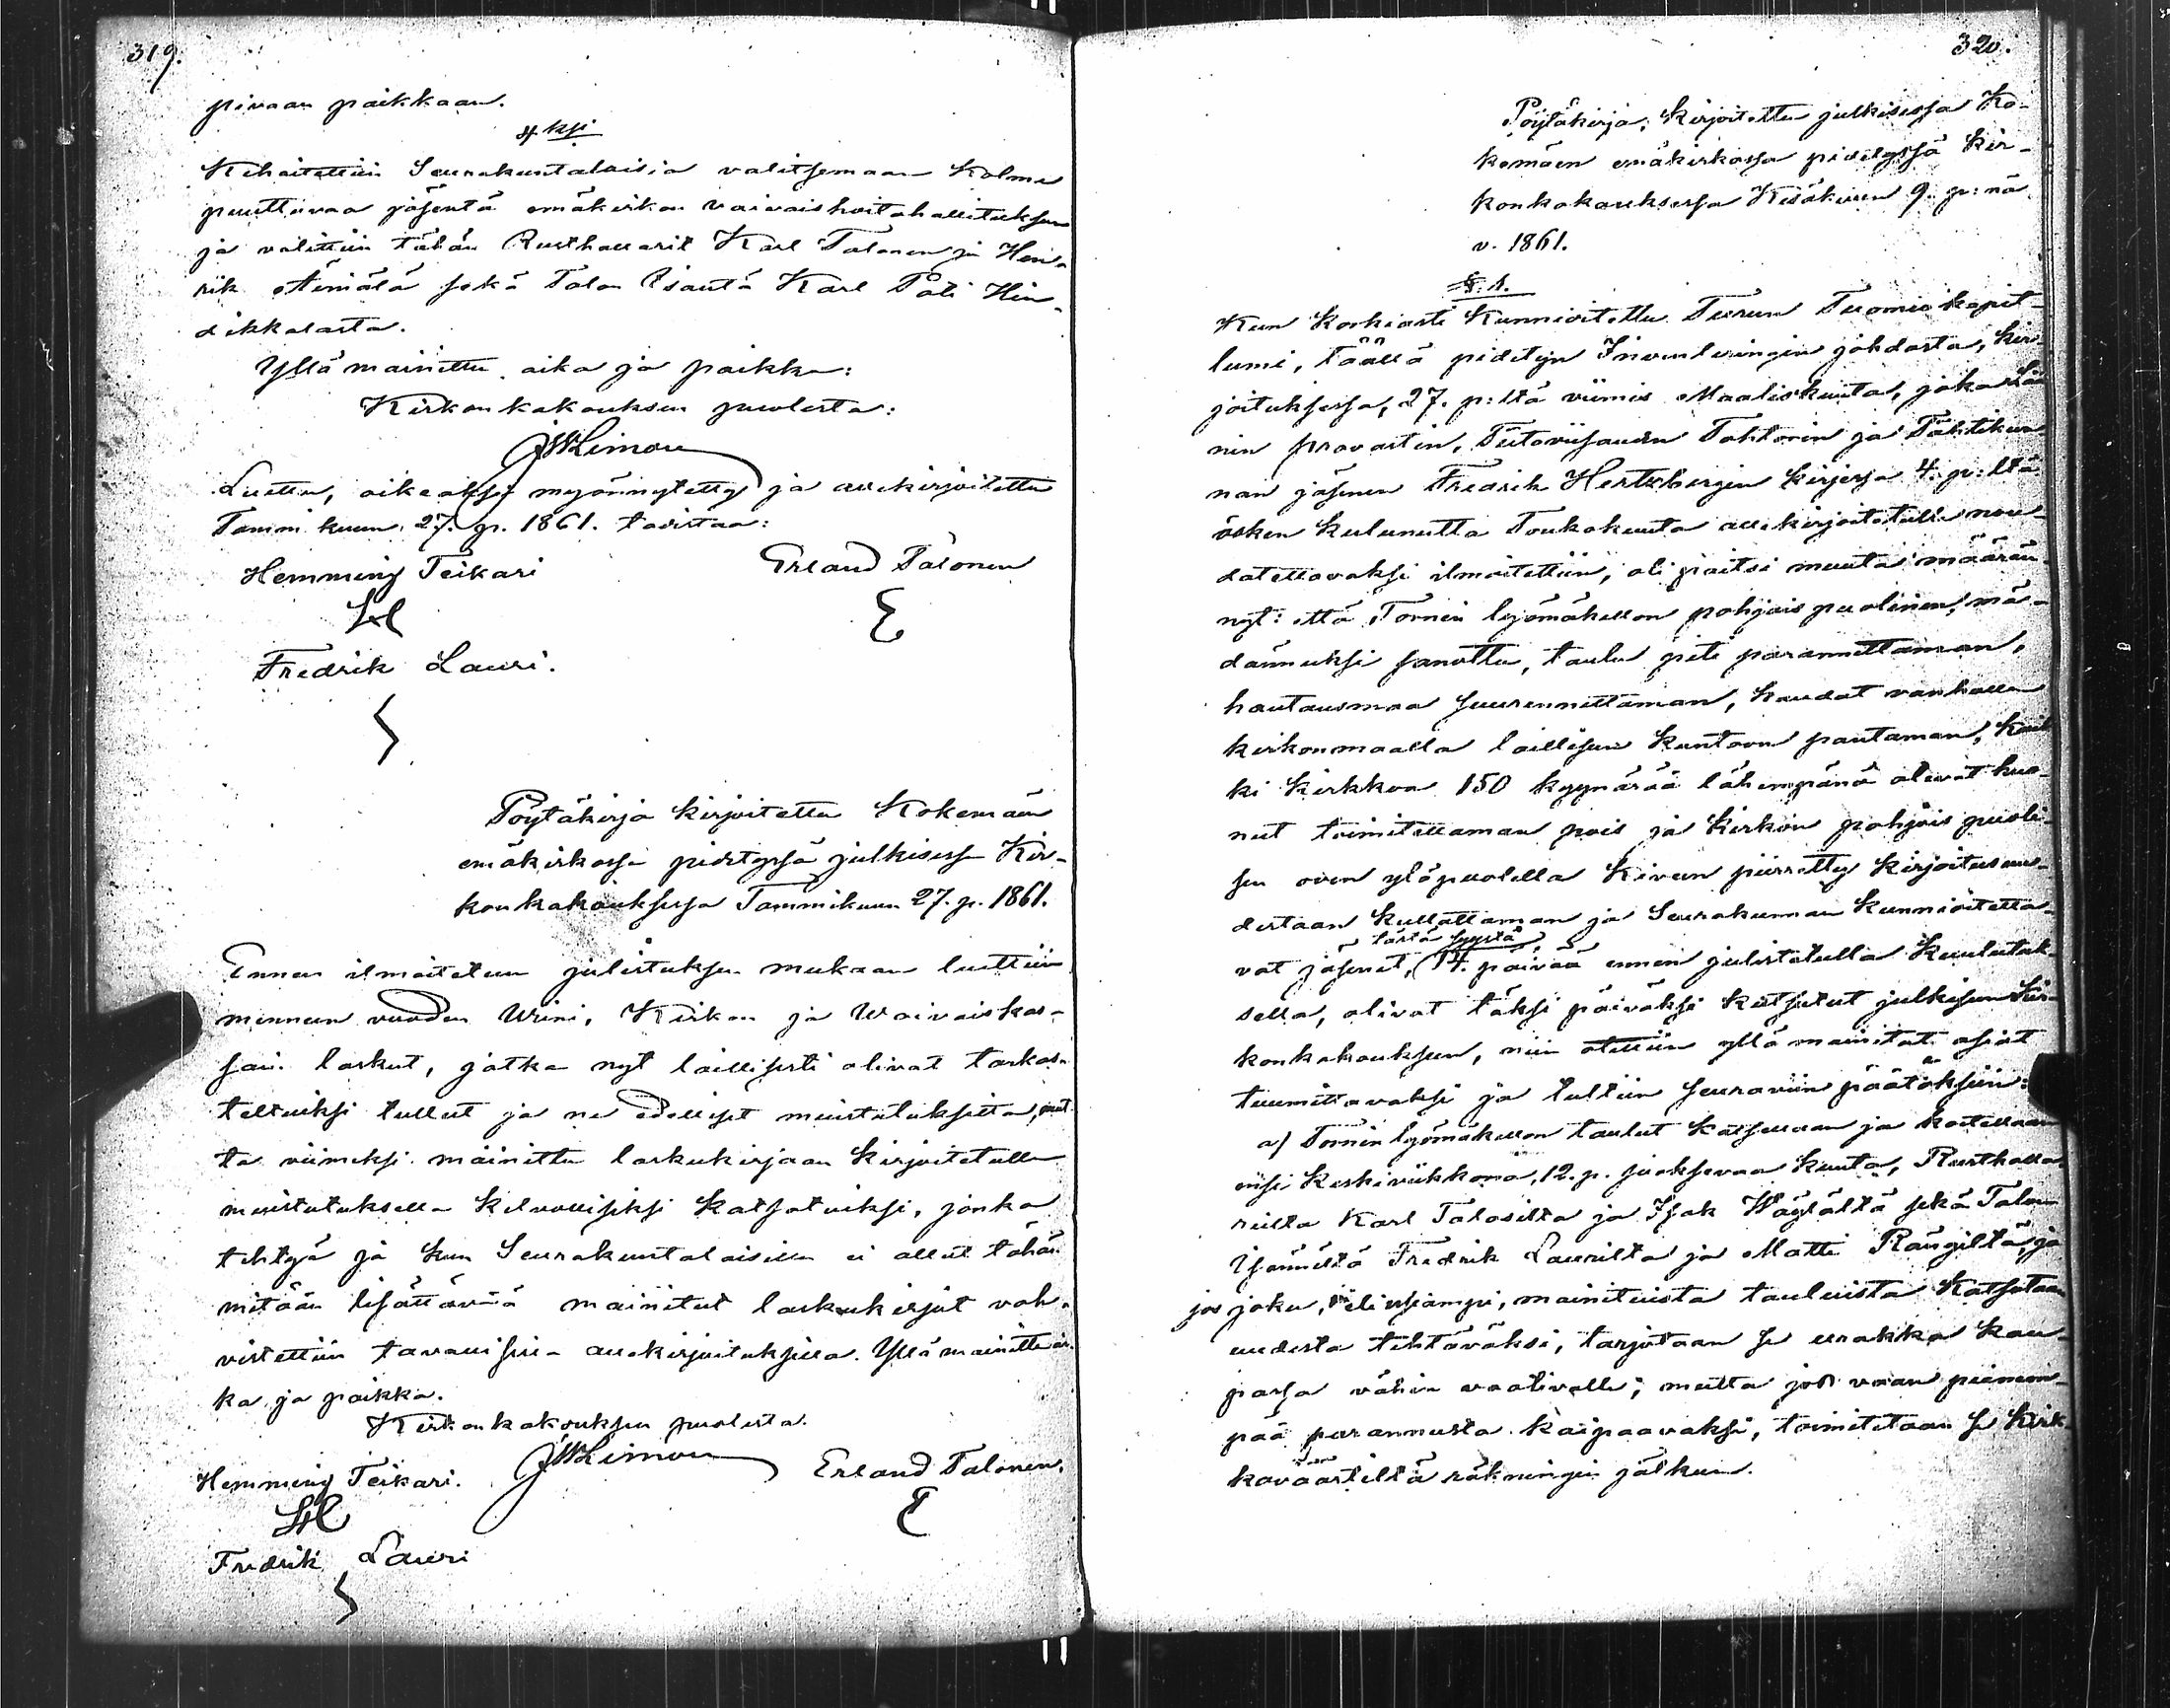 319.
pivaan paikkaan.
4 ksi
Kehoitettiin Seurakuntalaisia valitsemaan Kolme
puuttuvaa jäsentä emäkirkon Vaivaishoitohallituksen
ja valittiin tähän Rusthollarit Karl Talonen ja Hen-
rik Äimälä sekä Talon Isäntä Karl Päti Hin-
dikkalasta.
Yllä mainittu aika ja paikka:
Kirkonkokouksen puolesta:
Luettu, oikeaksi myönnytetty ja allekirjoitettu
Tammi kuun 27. p. 1861. todistaa:
Hemming Teikari Erland Talonen
Fredrik Lauri.
Pöytäkirja kirjoitettu Kokemäen
emäkirkossa pidetyssä julkisessa Kir-
konkokouksessa Tammikuun 27. p. 1861.
Ennen ilmoitetun julistuksen mukaan luettiin
menneen vuoden Viini, Kirkon ja Waivaiskas-
san laskut, jotka nyt laillisesti olivat tarkas-
telluiksi tullut ja ne edelliset muistutuksitta, mut-
ta viimeksi mainittu laskukirjaan Kirjoitetulla
muistutuksella Kelvollisiksi Katsotuiksi, jonka
tehtyä ja kun Seurakuntalaisilla ei ollut tähän
mitään lisättävää mainitut laskukirjat vah-
vistettiin tavallisilla allekirjoituksilla. Yllä mainittu ai-
ka ja paikka.
Kirkonkokouksen puolesta.
Hemming Teikari. Erland Talonen.
Fredrik Lauri
320.
Pöytäkirja, Kirjoitettu julkisessa Ko-
kemäen emäkirkossa pidetyssä Kir-
konkokouksessa Kesäkuun 9. p:nä
v. 1861.
§. 1.
Kun Korkiasti Kunnioitettu Turun Tuomiokapit-
lumi, täällä pidetyn Inventeringin johdosta, Kir-
joituksessa, 27. p:ltä viimis Maaliskuuta, joka
nin provastin, Tietoviisauden Tohtorin ja Tähtikun-
nan jäsenen Fredrik Hertzbergin Kirjessä 4. p:ltä
äsken kulunutta Toukokuuta allekirjoitetulle nou-
datettavaksi ilmoitettiin, oli paitsi muuta määrän-
nyt: että Tornin lyömäkellon pohjois puolinen, mä-
dännyksi sanottu, taulu piti parannettaman,
hautausmaa suurennettaman, haudat vanhalla
kirkonmaalla lailliseen kuntoon pantaman, Kaik-
ki Kirkkoa 150 kyynärää lähempänä olevat huo-
neet toimitettaman pois ja Kirkon pohjois puoli-
sen oven yläpuolella Kiveen piirretty Kirjoitus uu-
destaan Kullattaman ja Seurakunnan Kunnioitetta-
tästä syystä
vat jäsenet, 14. päivää ennen julistetulla Kuulutuk-
sella, olivat täksi päiväksi Kutsutut julkiseen Kir-
konkokoukseen, niin otettiin yllä mainitut asiat
tuumittavaksi ja tultiin seuraaviin päätöksiin:
a) Tornin lyömäkellon taulut Katsellaan ja koetellaan
ensi Keskiviikkona, 12. p. juoksevaa Kuuta, Rustholla-
reilta Karl Talosilta ja Isak Wäylältä sekä Talon
Isänniltä Fredrik Laurilta ja Matti Rängiltä, ja
jos joku, eli usiampi, mainituista tauluista Katsotaan
uudesta tehtäväksi, tarjotaan se urakka Kau-
passa vähin vaativalle; mutta jos vaan pienem-
pää parannusta kaipaavaksi, toimitetaan se Kirk-
koväärtiltä räkningin jälkeen.